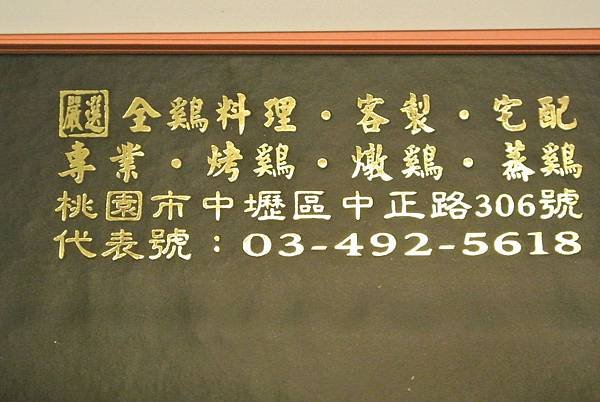 嚴選 全鷄料理·客製·宅配
專業·烤鷄·燉鷄·蒸鷄
桃園市中壢區中正路306號
代表號：03-492-5618